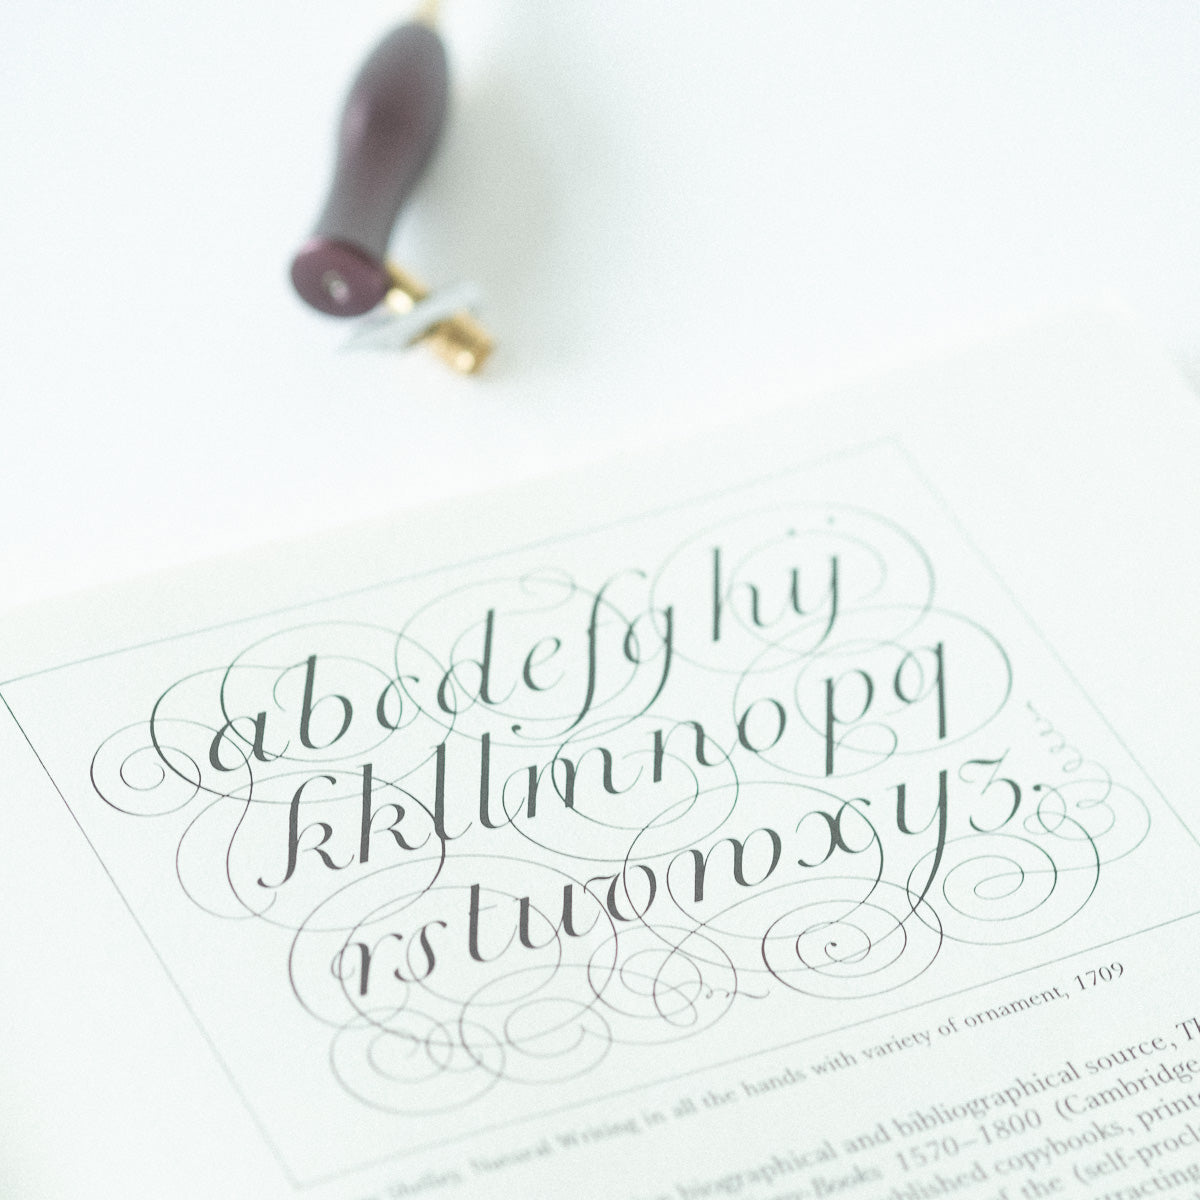 abcdefghij
kkllmnopq
rstuvwxyz.
Shelley, Natural Writing in all the hands with variety of ornament, 1709
biographical and bibliographical source, Th
Books 1570–1800 (Cambridge
published copybooks, printe
of the (self-procla